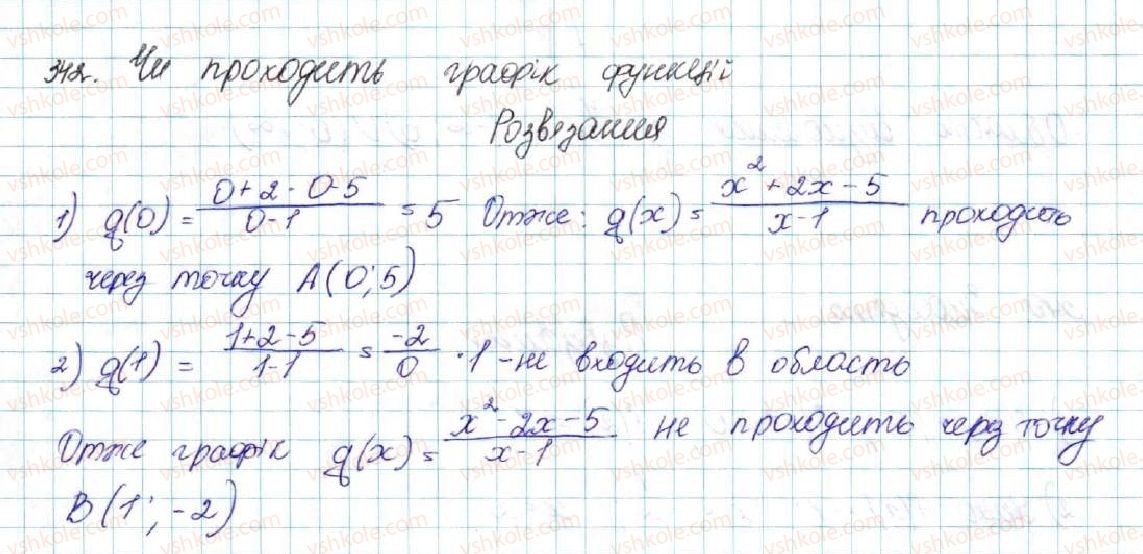 342. Чи проходить графік функцій
Розвязання
1) g(0) = (0+2·0-5)/(0-1) = 5 Отже: g(x) = (x²+2x-5)/(x-1) проходить
через точку A(0;5)
2) g(1) = (1+2-5)/(1-1) = -2/0 · 1 - не входить в область
Отже графік g(x) = (x²-2x-5)/(x-1) не проходить через точку
B(1; -2)